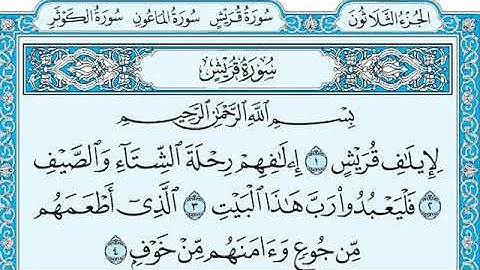 الجزء الثلاثون سورة قريش سورة الماعون سورة الكوثر
سورة قريش
بسم الله الرحمن الرحيم
لِإِيلَٰفِ قُرَيْشٍ ١ إِۦلَٰفِهِمْ رِحْلَةَ الشِّتَآءِ وَالصَّيْفِ
٢ فَلْيَعْبُدُوا۟ رَبَّ هَٰذَا الْبَيْتِ ٣ الَّذِىٓ أَطْعَمَهُم
مِّن جُوعٍ وَءَامَنَهُم مِّنْ خَوْفٍۭ ٤